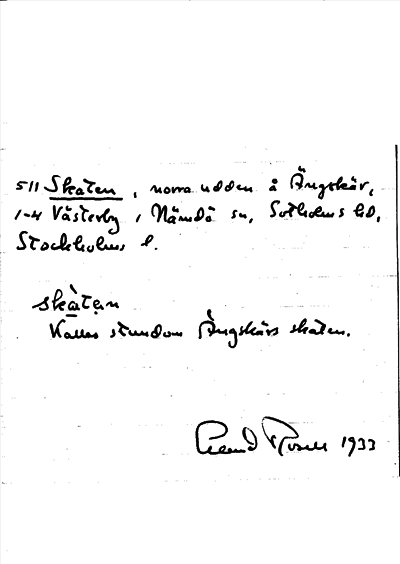 511 Skaten, norra udden å Ängskär,
1-4 Västerby i Nämdö sn, Sotholms hd,
Stockholms l.
skàtạn
Kallas stundom Ängskärs skaten.
1933